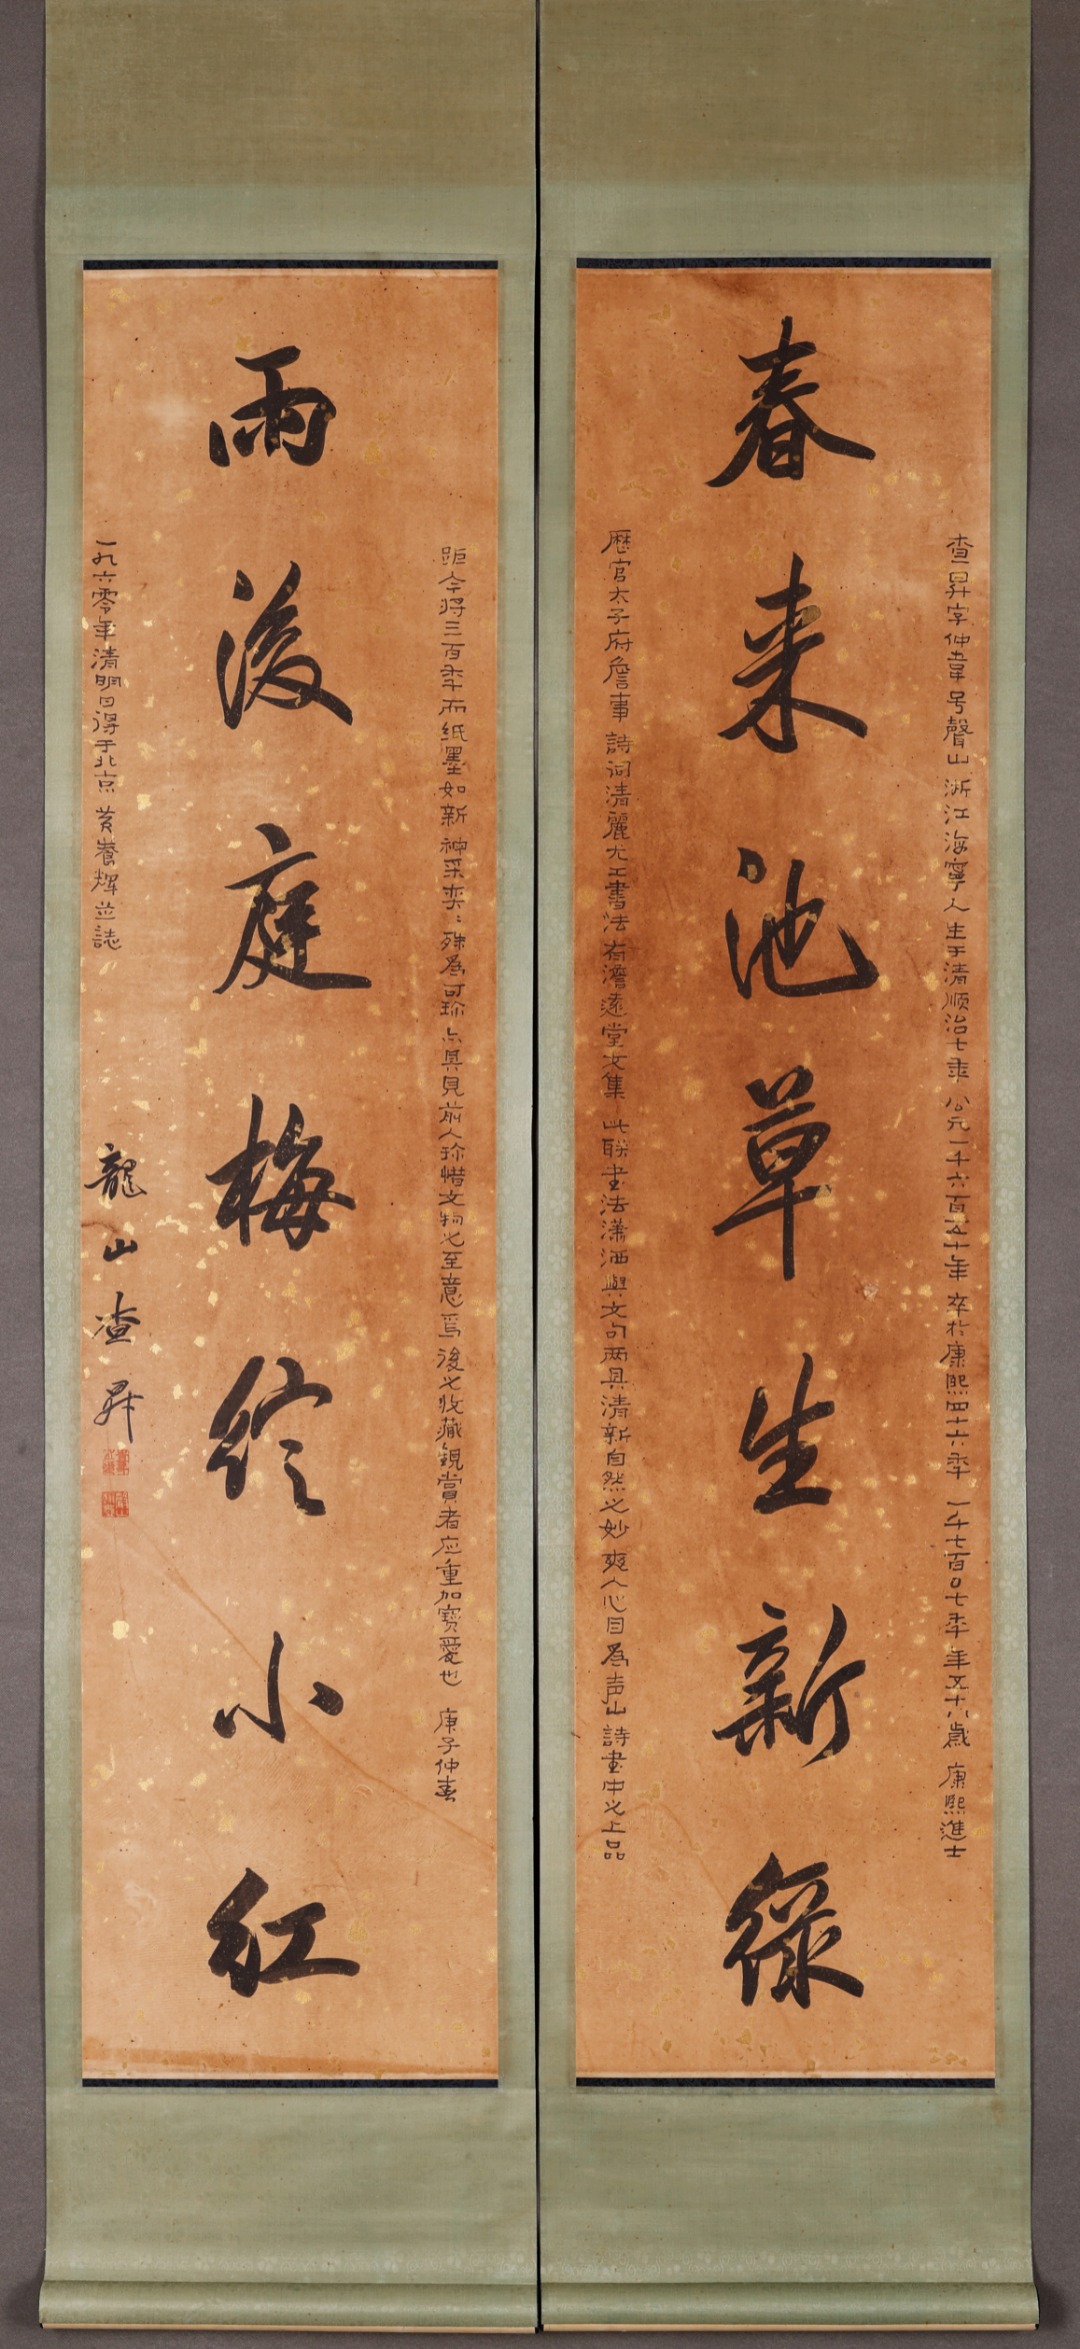 春来池草生新綠
查昇字仲韋号聲山浙江海寧人生于清順治七年公元一千六百五十年卒於康熙四十六年一千七百0七年年五十八歲康熙進士
歷官太子府詹事詩词清麗尤工書法有澹遠堂文集此联書法瀟洒與文句两具清新自然之妙爽人心目為声山詩書中之上品
雨後庭梅綻小红
距今将三百年而纸墨如新神采奕〻殊為可珍亦具見前人珍惜文物之至意焉後之收藏観賞者应重加寳愛也庚子仲春
一九六零年清明日得于北京黄養輝並誌
龍山查昇